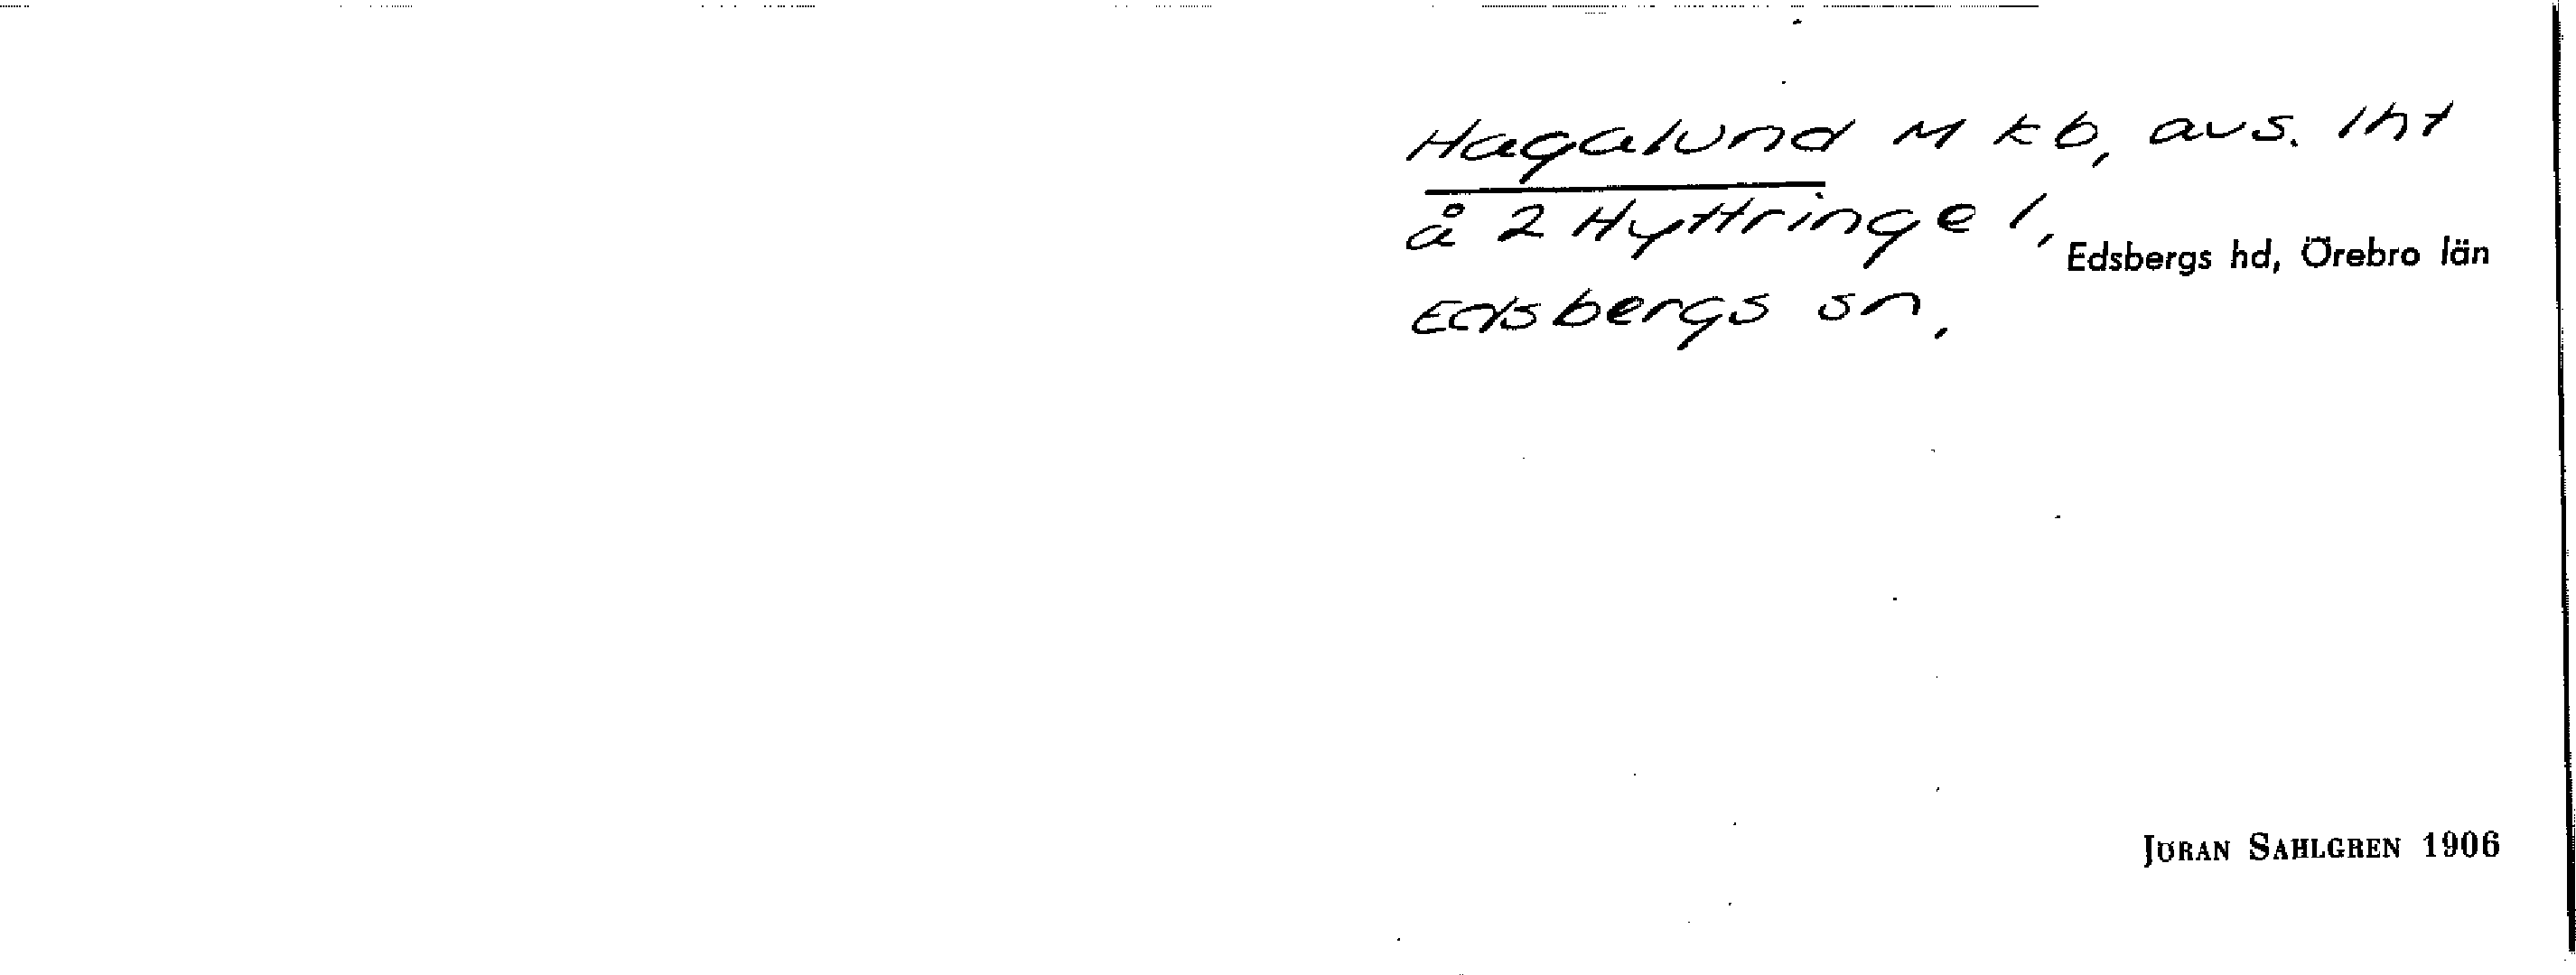 Hagalund M kb, avs. lht
å 2 Hyttringe l,
Edsbergs hd, Örebro län
Edsbergs sn,
JÖRAN SAHLGREN 1906